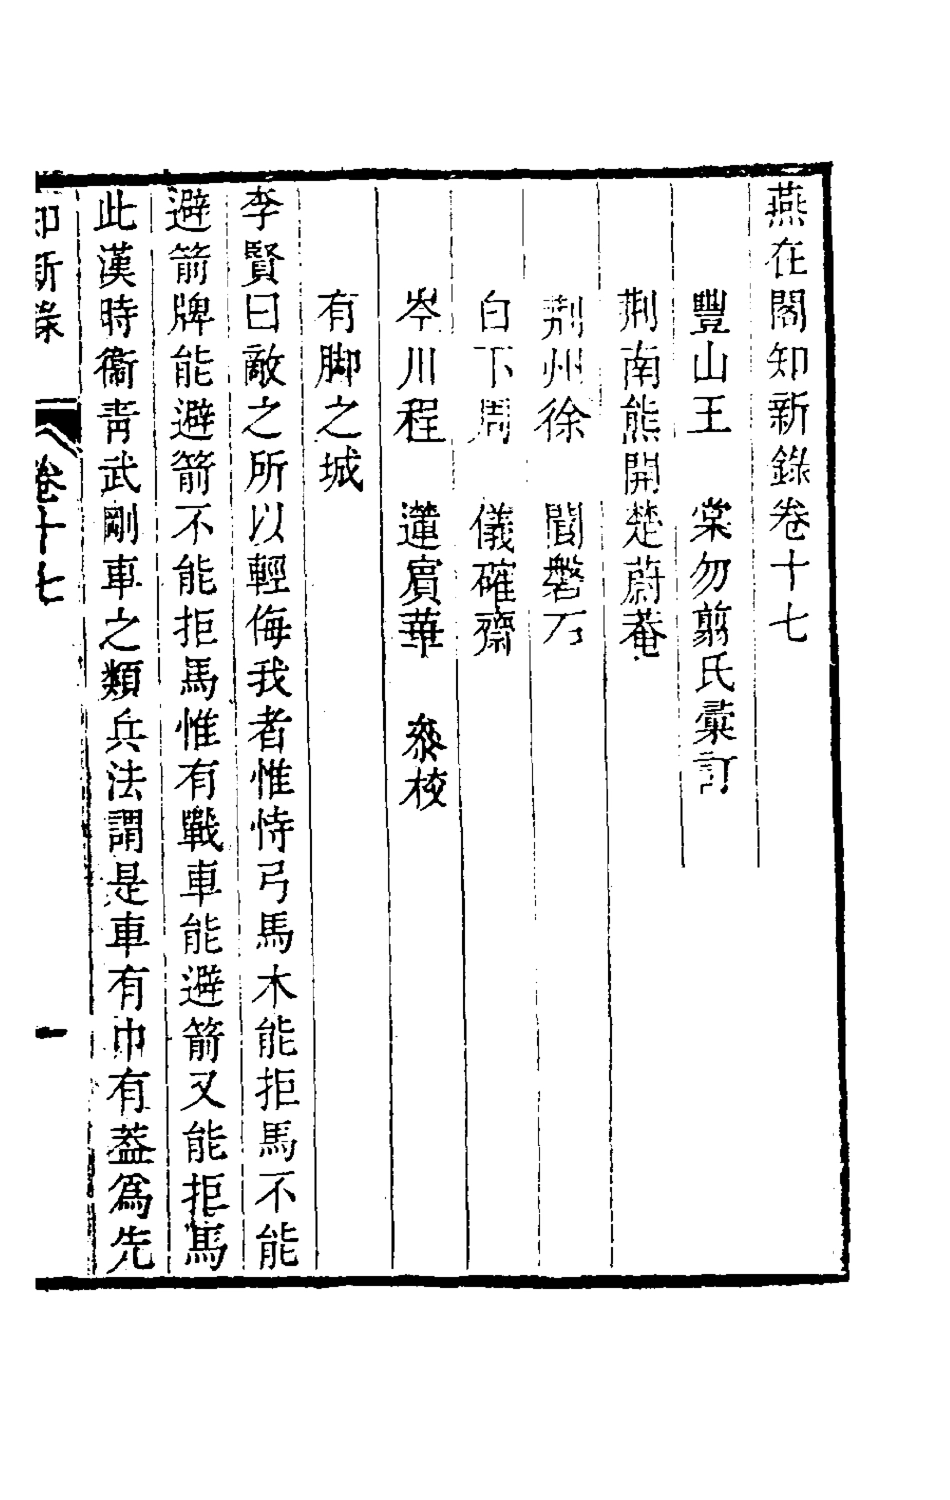 燕在閣知新錄卷十七
豐山王　棠勿翦氏彙訂
荆南熊開楚蔚菴
荆州徐　閶磐石
白下周　儀確齋
岑川程　蓮賓華　叅校
有脚之城
李賢曰敵之所以輕侮我者惟恃弓馬木能拒馬不能
避箭牌能避箭不能拒馬惟有戰車能避箭又能拒馬
此漢時衞青武剛車之類兵法謂是車有巾有葢爲先
知新錄　卷十七　一